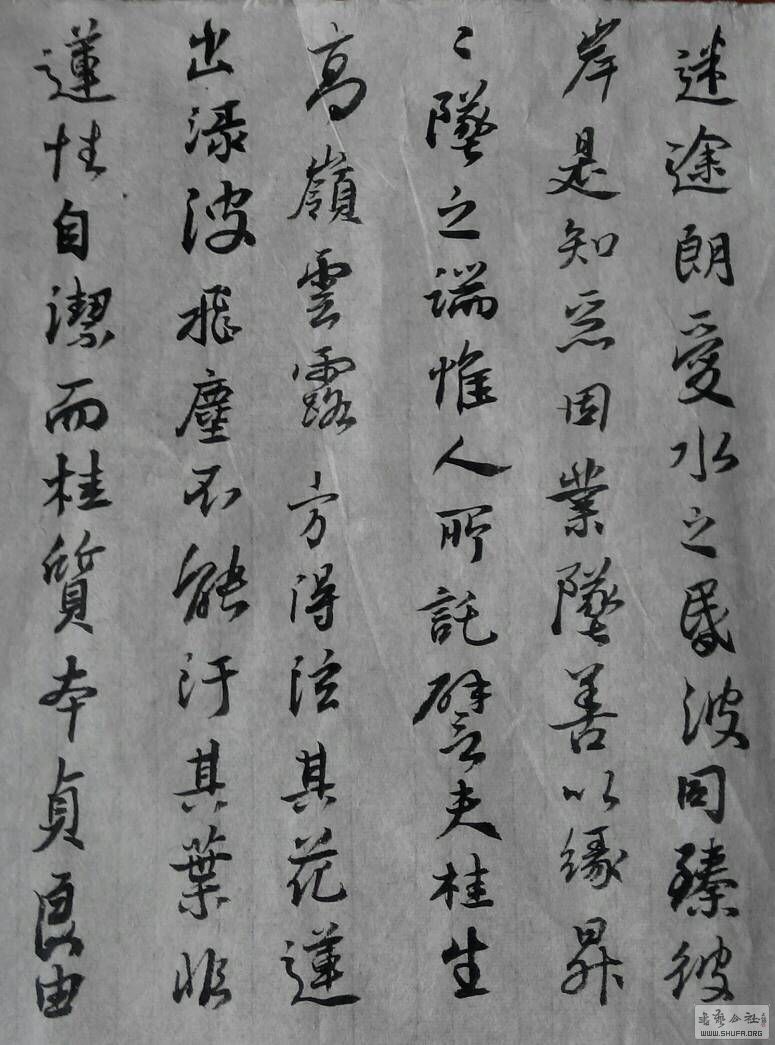 迷途朗愛水之昏波同臻彼
岸是知惡因業墜善以緣昇
〻墜之端惟人所託譬夫桂生
高嶺雲露方得泫其花蓮
出淥波飛塵不能汙其葉非
蓮性自潔而桂質本貞良由
WWW.SHUFA.ORG